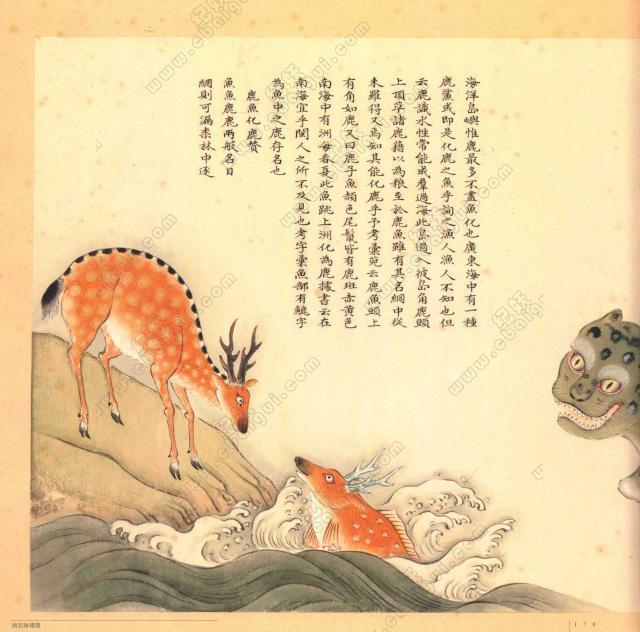 海洋島嶼惟鹿最多不盡魚化也廣東海中有一種
鹿鯊或即是化鹿之魚乎詢之漁人漁人不知也但
云鹿識水性常能成羣過海此島過入彼島角鹿頭
上頂草諸鹿藉以為粮至於鹿魚雖有其名網中從
未羅得又焉知其能化鹿乎予考彙苑云鹿魚頭上
有角如鹿又曰鹿子魚頳色尾鬣皆有鹿斑赤黄色
南海中有洲每春夏此魚跳上洲化為鹿據書云在
南海宜乎閩人之所不及見也考字彙魚部有䴢字
為魚中之鹿存名也
鹿魚化鹿贊
魚魚鹿鹿兩般名目
網則可漏柰林中逐
清宫海错图
170
紀妖
www.cbaigui.com